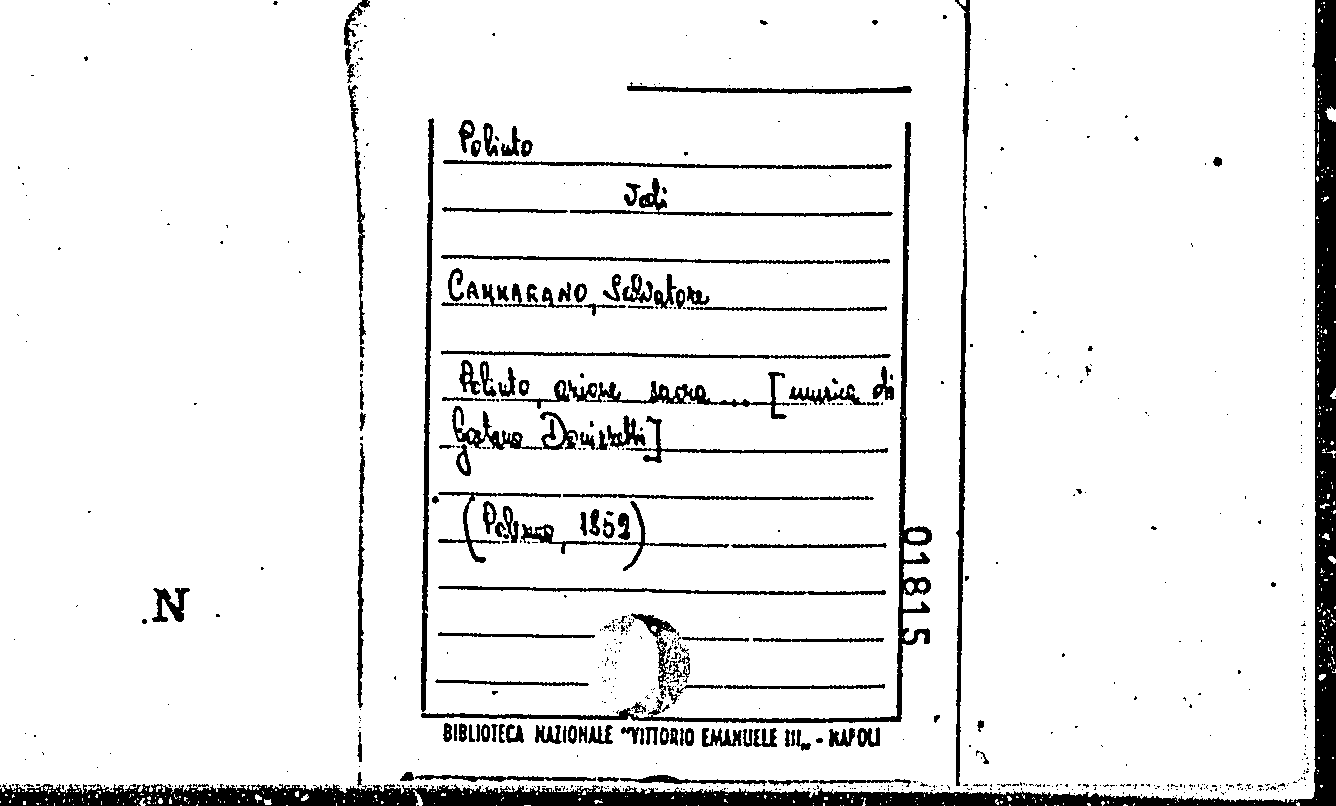 Poliuto
Vedi
CAMMARANO, Salvatore
Poliuto, azione sacra ... [musica di
Gaetano Donizzetti]
(Palermo, 1852)
01815
N
BIBLIOTECA NAZIONALE "VITTORIO EMANUELE III„ - NAPOLI